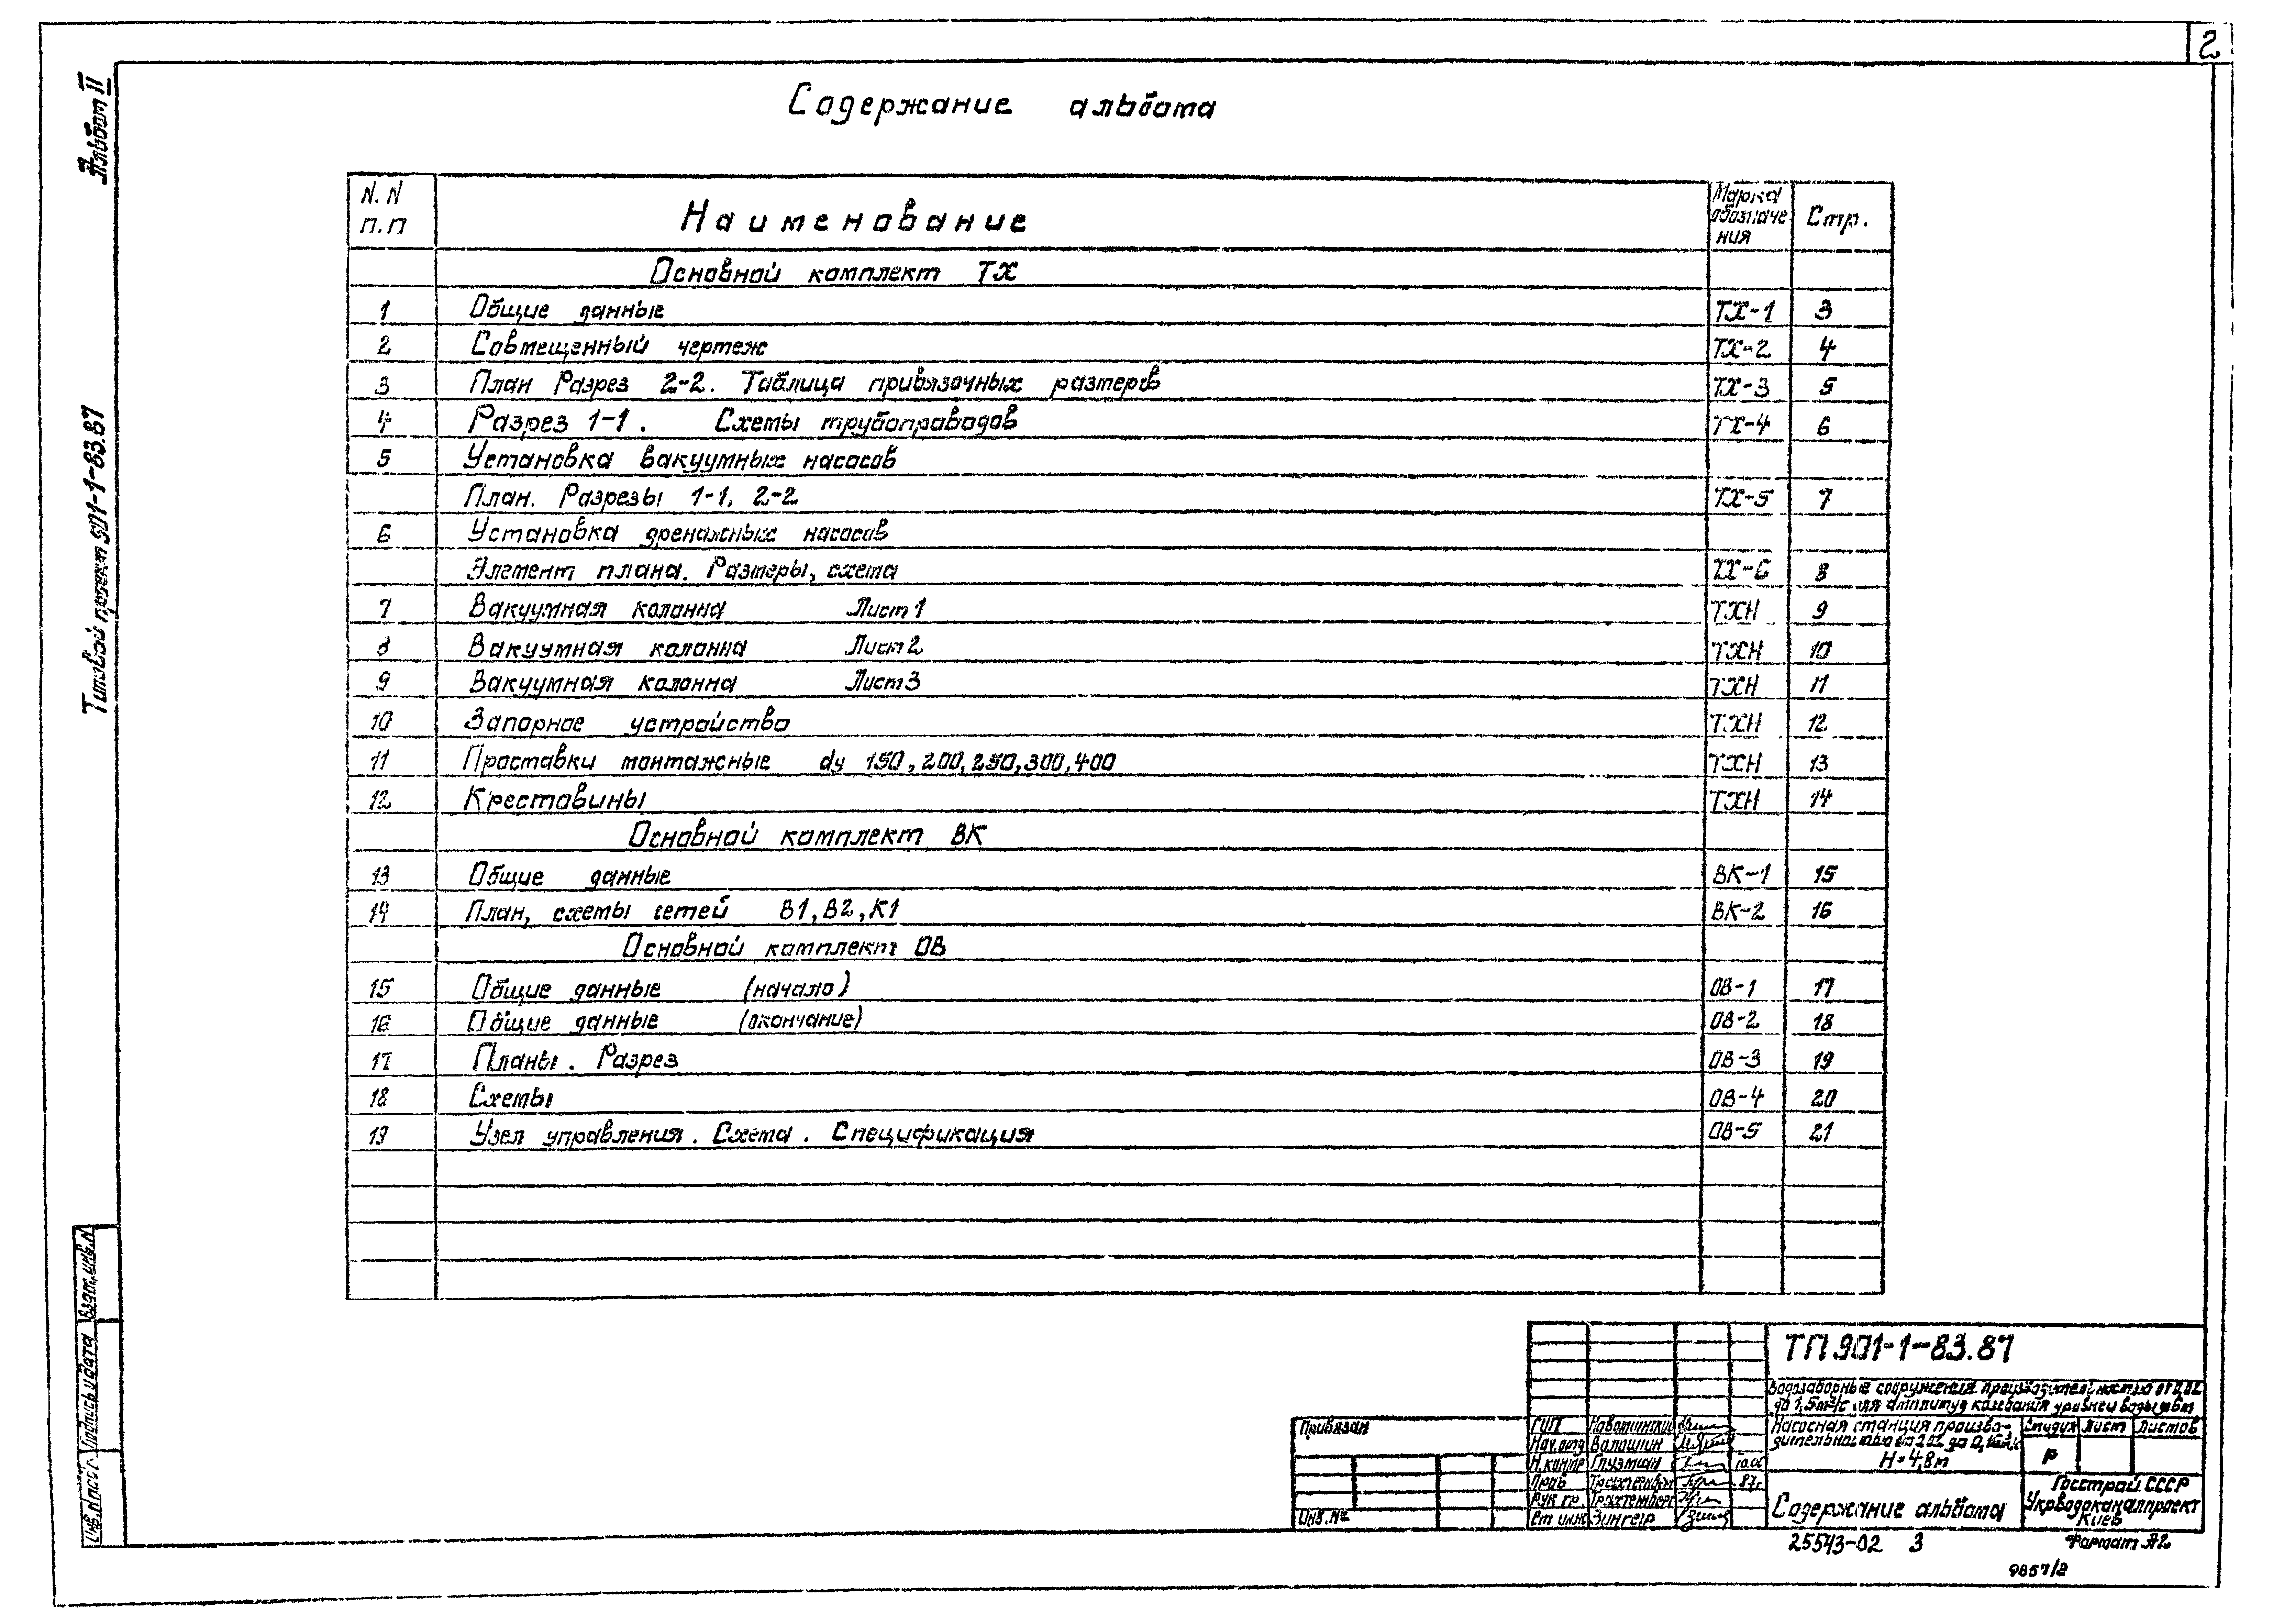 2
Альбом II
Типовой проект 901-1-83.87
Содержание альбома
N.N п.п Наименование Марка обозначения Стр.
Основной комплект ТХ
1 Общие данные ТХ-1 3
2 Совмещенный чертеж ТХ-2 4
3 План Разрез 2-2. Таблица привязочных размеров ТХ-3 5
4 Разрез 1-1. Схемы трубопроводов ТХ-4 6
5 Установка вакуумных насосов
План. Разрезы 1-1, 2-2 ТХ-5 7
6 Установка дренажных насосов
Элемент плана. Размеры, схема ТХ-6 8
7 Вакуумная колонна Лист 1 ТХН 9
8 Вакуумная колонна Лист 2 ТХН 10
9 Вакуумная колонна Лист 3 ТХН 11
10 Запорное устройство ТХН 12
11 Проставки монтажные dy 150, 200, 250, 300, 400 ТХН 13
12 Крестовины ТХН 14
Основной комплект ВК
13 Общие данные ВК-1 15
14 План, схемы сетей В1, В2, К1 ВК-2 16
Основной комплект ОВ
15 Общие данные (начало) ОВ-1 17
16 Общие данные (окончание) ОВ-2 18
17 Планы. Разрез ОВ-3 19
18 Схемы ОВ-4 20
19 Узел управления. Схема. Спецификация ОВ-5 21
Взам.инв.N
Подпись и дата
Инв.N подл.
Привязан
Инв.№
ГИП
Нач.отд Волошин
Н.контр Глузман 10.06
Пров Трахтенберг 87г
Рук.гр. Трахтенберг
Ст инж Зингер
ТП 901-1-83.87
Водозаборные сооружения производительностью от 0,02
до 1,5м³/с для амплитуд колебания уровней воды 6м
Насосная станция произво-
дительностью
Н=4,8м
Стадия Лист Листов
Р
Содержание альбома
Госстрой СССР
Укрводоканалпроект
Киев
25543-02 3
Формат А2
9857/2